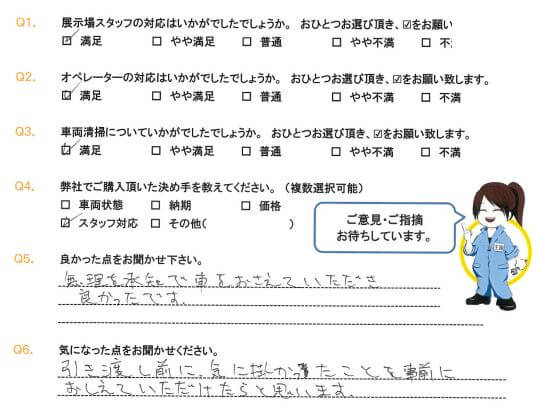 Q1. 展示場スタッフの対応はいかがでしたでしょうか。 おひとつお選び頂き、☑をお願い
☑ 満足 □ やや満足 □ 普通 □ やや不満 □ 不
Q2. オペレーターの対応はいかがでしたでしょうか。 おひとつお選び頂き、☑をお願い致します。
☑ 満足 □ やや満足 □ 普通 □ やや不満 □ 不満
Q3. 車両清掃についていかがでしたでしょうか。 おひとつお選び頂き、☑をお願い致します。
☑ 満足 □ やや満足 □ 普通 □ やや不満 □ 不満
Q4. 弊社でご購入頂いた決め手を教えてください。（複数選択可能）
□ 車両状態 □ 納期 □ 価格
☑ スタッフ対応 □ その他( )
ご意見・ご指摘
お待ちしています。
Q5. 良かった点をお聞かせ下さい。
無理を承知で車をおさえていただき
良かったです。
Q6. 気になった点をお聞かせください。
引き渡し前に、気に掛かったことを事前に
おしえていただけたらと思います。